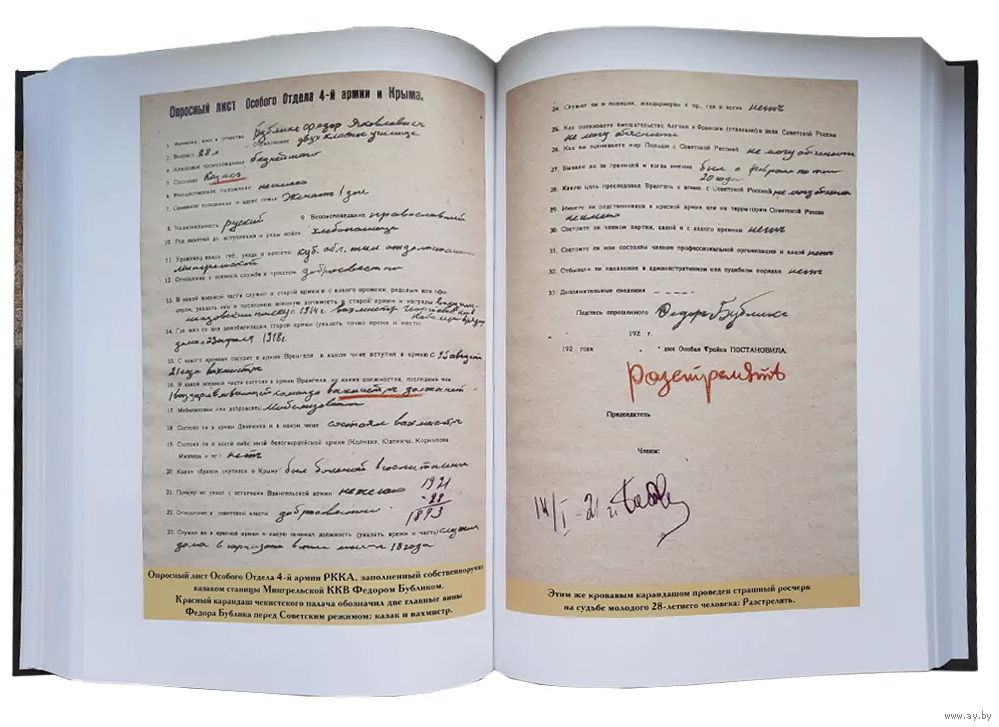 Опросный лист Особого Отдела 4-й армии и Крыма.
1. Фамилия, имя и отчество Бублик Федор Яковлевич
2. Возраст 28 л. Образование двух классное училище
4. Классовое происхождение
5. Сословие Казакъ
6. Имущественное положение неимею
7. Семейное положение и адрес семьи Женатъ 1 дет
8. Национальность руский 9. Вероисповедание православный
10. Род занятий до вступления и ряды войск хлебопашец
11. Уроженец какой губ. уезда и волости куб. обл.
мингрельской
12. Отношение к военной службе в прошлом добросовестно
13. В какой военной части служил в старой армии и с какого времени, рядовым или офи-
цером, указать чин и последнюю военную должность в старой армии и награды
1914 г. вахмистр
14. Где жил со дня демобилизации старой армии (указать точно время и место)
дома 1918 г.
15. С какого времени состоит в армии Врангеля, в каком чине вступил в армию с 25 августа
вахмистр
16. В какой военной части состоял в армии Врангеля, на каких должностях, последний чин
команда вахмистр
17. Мобилизован или доброволец Мобилизован
18. Состоял ли в армии Деникина и в каком чине состоял вахмистр
19. Состоял ли в какой либо иной белогвардейской армии (Колчака, Юденича, Корнилова,
и пр.) нетъ
20. Каким образом очутился в Крыму был больной в госпитале
21. Почему не уехал с остатками Врангельской армии нежелаю
1921
-28
1893
22. Отношение к советской власти
23. Служил ли в красной армии и какую занимал должность (указать время и часть) служил
дома в 18 года
Опросный лист Особого Отдела 4-й армии РККА, заполненный собственноручно
казаком станицы Мингрельской ККВ Федором Бубликом.
Красный карандаш чекистского палача обозначил две главные вины
Федора Бублика перед Советским режимом: казак и вахмистр.
24. Служил ли в полиции, жандармерии и пр., где и когда нетъ
25. Как оцениваете вмешательство Англии и Франции в дела Советской России
не могу объяснить
26. Как вы оцениваете мир Польши с Советской Россией не могу объяснить
27. Бывали ли за границей и когда именно был с февраля по
20 года
28. Какую цель преследовал Врангель в войне с Советской Россией не могу
29. Имеете ли родственников в красной армии или на территории Советской России
неимею
30. Состоите ли членом партии, какой и с какого времени нетъ
31. Состоите ли или состояли членом профессиональной организации и какой нетъ
32. Отбывали ли наказание в административном или судебном порядке нетъ
33. Дополнительные сведения - - - -
Подпись опрошенного Федор Бублик
192 г.
192 года дня Особая Тройка ПОСТАНОВИЛА:
Разстрелять
Председатель
Члены:
14/I-21 г.
Этим же кровавым карандашом проведен страшный росчерк
на судьбе молодого 28-летнего человека: Разстрелять.
www.ay.by